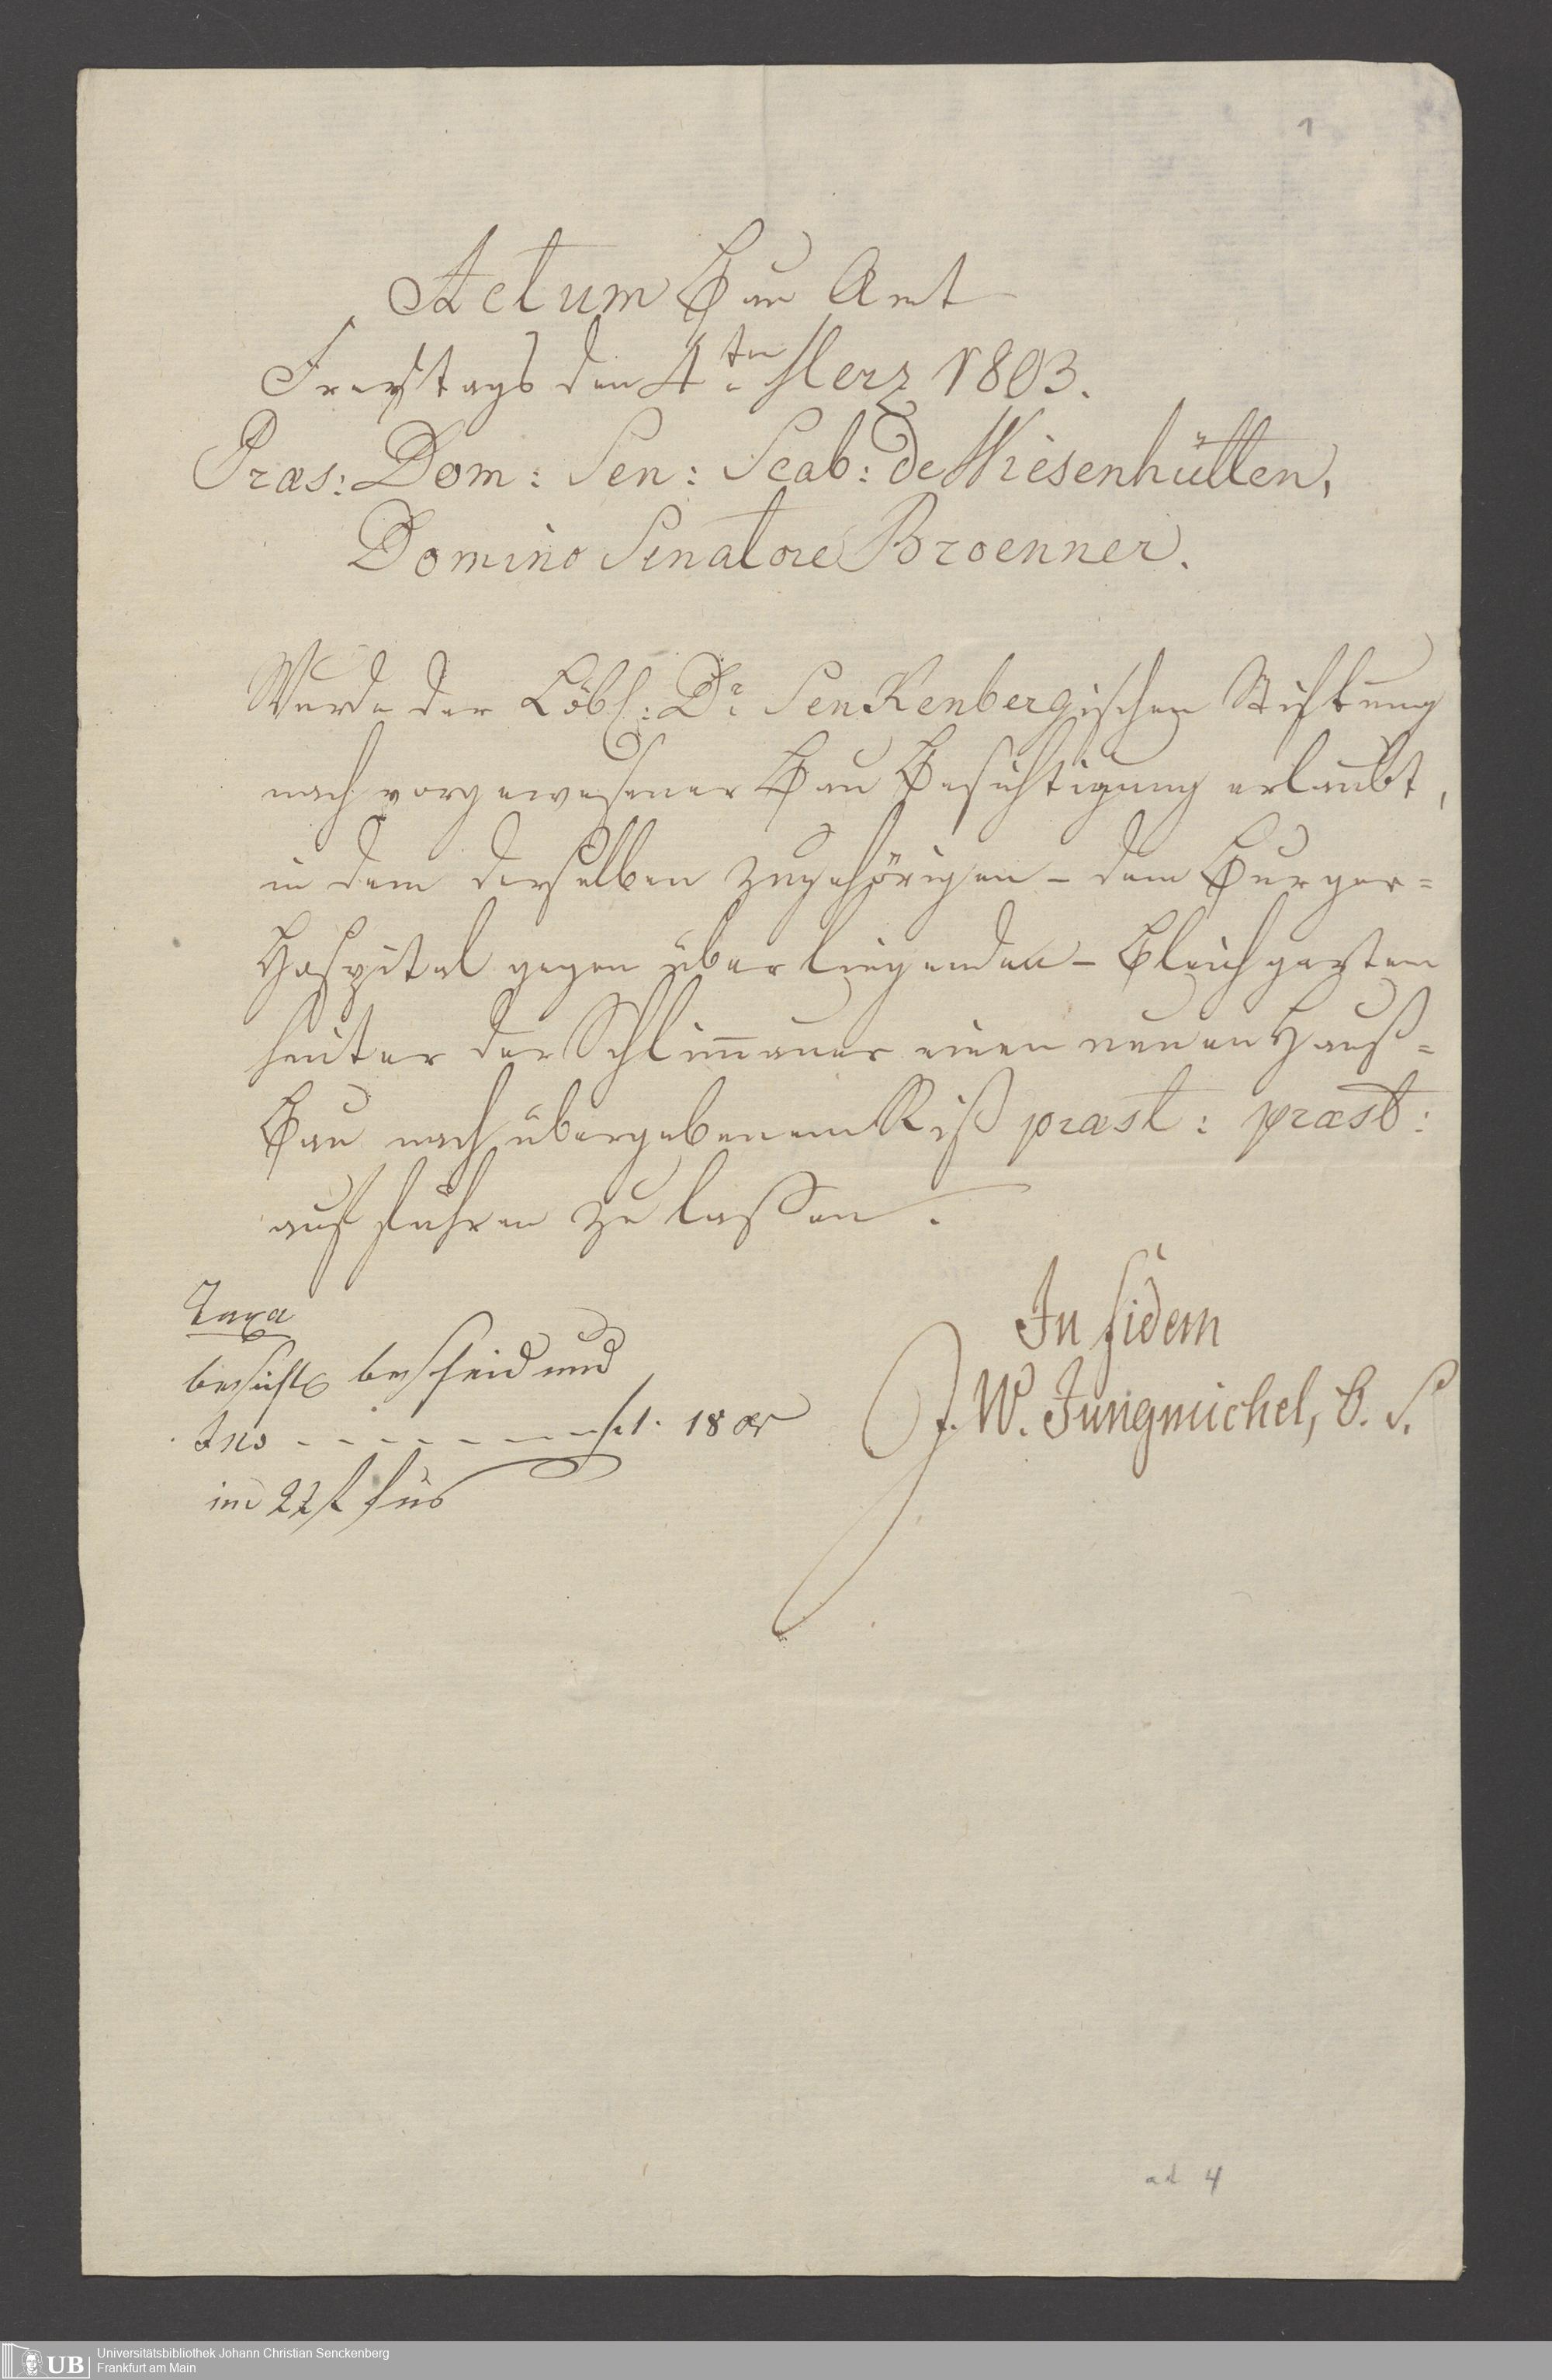 1
Actum Bau Amt
Freÿtags den 4ten Merz 1803.
Præs: Dom: Sen: Scab: de Wiesenhütten,
Domino Senatore Broenner.
Wurde der Löbl: Dr. Senkenbergischen Stiftung
nach vorgewesener Bau Besichtigung erlaubt,
in dem derselben zugehörigen - dem Burger=
Hospital gegen über liegenden - Bleichgarten
hinter der Schlimauer einen neuen Hauß=
Bau nach übergebenem Riß præst: præst:
aufführen zu laßen.
Taxa
In fidem
bescheid und
J. W. Jungmichel, B. S.
18
im 22
ad 4
UB Universitätsbibliothek Johann Christian Senckenberg
Frankfurt am Main